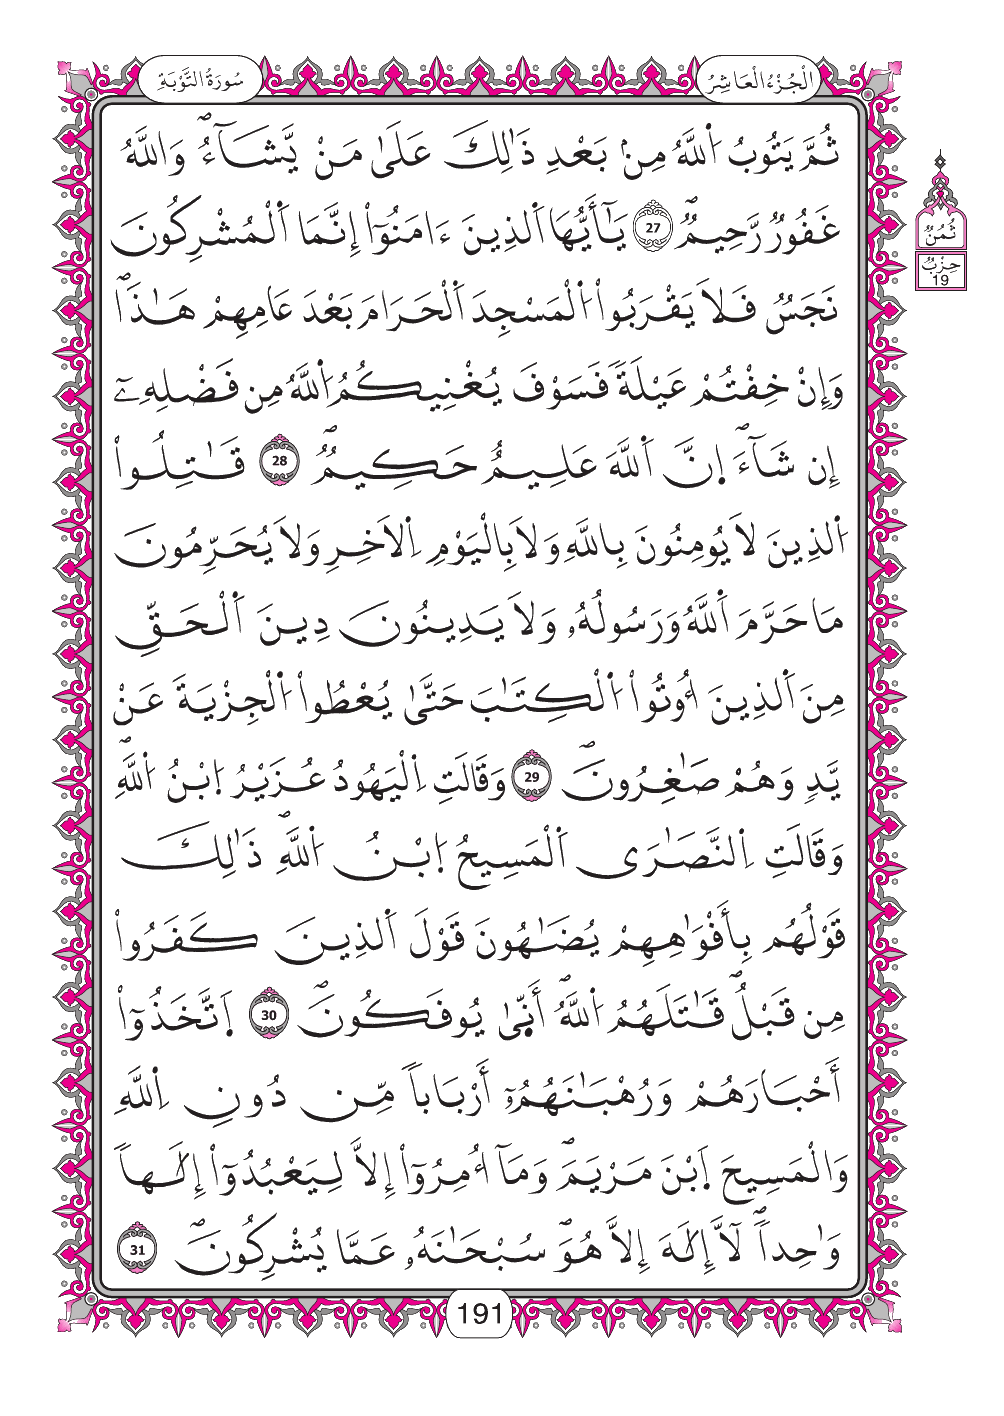 سُورَةُ التَّوْبَةِ
الْجُزْءُ الْعَاشِرُ
ثُمَّ يَتُوبُ اُ۬للَّهُ مِنۢ بَعْدِ ذَٰلِكَ عَلَىٰ مَنْ يَّشَآءُۖ وَاللَّهُ
غَفُورٞ رَّحِيمٞۖ 27 يَٰٓأَيُّهَا اَ۬لذِينَ ءَامَنُوٓاْ إِنَّمَا اَ۬لْمُشْرِكُونَ
نَجَسٞ فَلَا يَقْرَبُواْ اُ۬لْمَسْجِدَ اَ۬لْحَرَامَ بَعْدَ عَامِهِمْ هَٰذَاۖ
وَإِنْ خِفْتُمْ عَيْلَةٗ فَسَوْفَ يُغْنِيكُمُ اُ۬للَّهُ مِن فَضْلِهِۦٓ
إِن شَآءَۖ اِ۪نَّ اَ۬للَّهَ عَلِيمٌ حَكِيمٞۖ 28 قَٰتِلُواْ
اُ۬لذِينَ لَا يُومِنُونَ بِاللَّهِ وَلَا بِالْيَوْمِ اِ۬لَاخِرِ وَلَا يُحَرِّمُونَ
مَا حَرَّمَ اَ۬للَّهُ وَرَسُولُهُۥ وَلَا يَدِينُونَ دِينَ اَ۬لْحَقِّ
مِنَ اَ۬لذِينَ أُوتُواْ اُ۬لْكِتَٰبَ حَتَّىٰ يُعْطُواْ اُ۬لْجِزْيَةَ عَنْ
يَّدٖ وَهُمْ صَٰغِرُونَۖ 29 وَقَالَتِ اِ۬لْيَهُودُ عُزَيْرُ اُ۪بْنُ اُ۬للَّهِۖ
وَقَالَتِ اِ۬لنَّصَٰرَى اَ۬لْمَسِيحُ اُ۪بْنُ اُ۬للَّهِۖ ذَٰلِكَ
قَوْلُهُم بِأَفْوَٰهِهِمْ يُضَٰهُونَ قَوْلَ اَ۬لذِينَ كَفَرُواْ
مِن قَبْلُۖ قَٰتَلَهُمُ اُ۬للَّهُۖ أَنّ۪ىٰ يُوفَكُونَۖ 30 اَ۪تَّخَذُوٓاْ
أَحْبَارَهُمْ وَرُهْبَٰنَهُمُۥٓ أَرْبَاباٗ مِّن دُونِ اِ۬للَّهِ
وَالْمَسِيحَ اَ۪بْنَ مَرْيَمَۖ وَمَآ أُمِرُوٓاْ إِلَّا لِيَعْبُدُوٓاْ إِلَٰهاٗ
وَٰحِداٗۖ لَّآ إِلَٰهَ إِلَّا هُوَۖ سُبْحَٰنَهُۥ عَمَّا يُشْرِكُونَۖ 31
ثُمُنٌ
حِزْبٌ
19
191